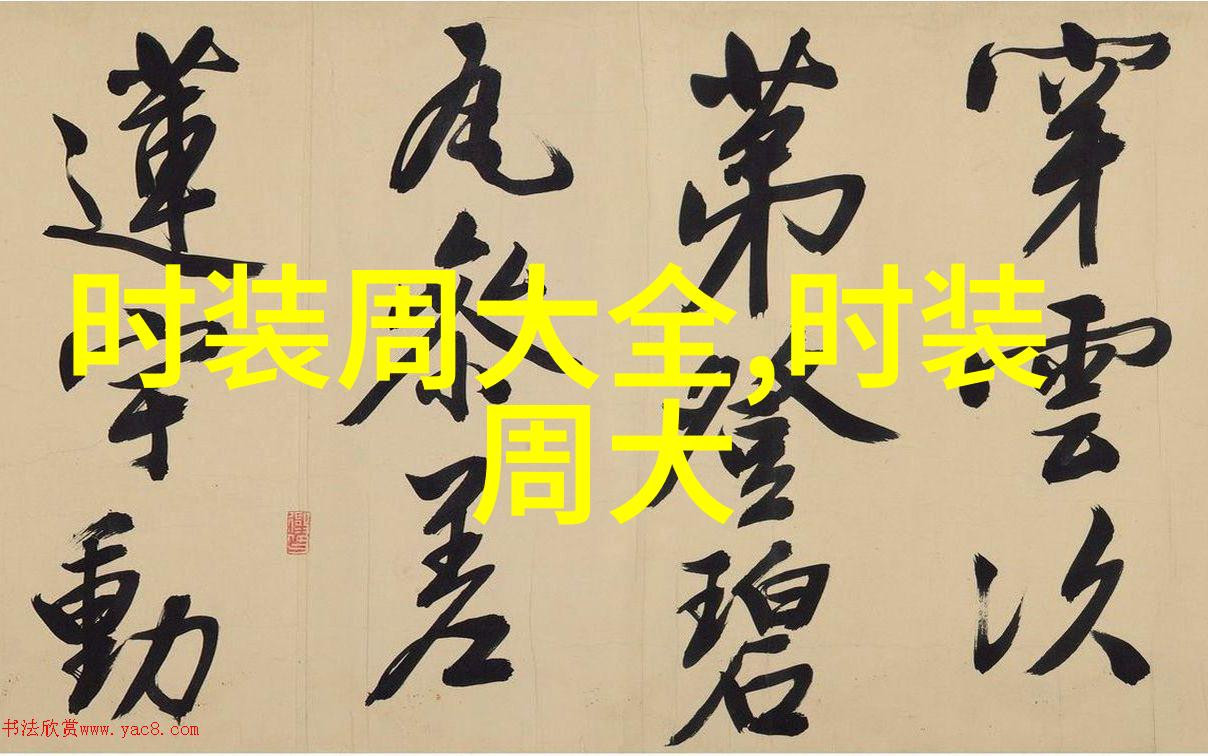 穿雲次
苐登碧
瓦叅差
蓮宇動
时装周大全,时装
周大
书法欣赏www.yac8.com